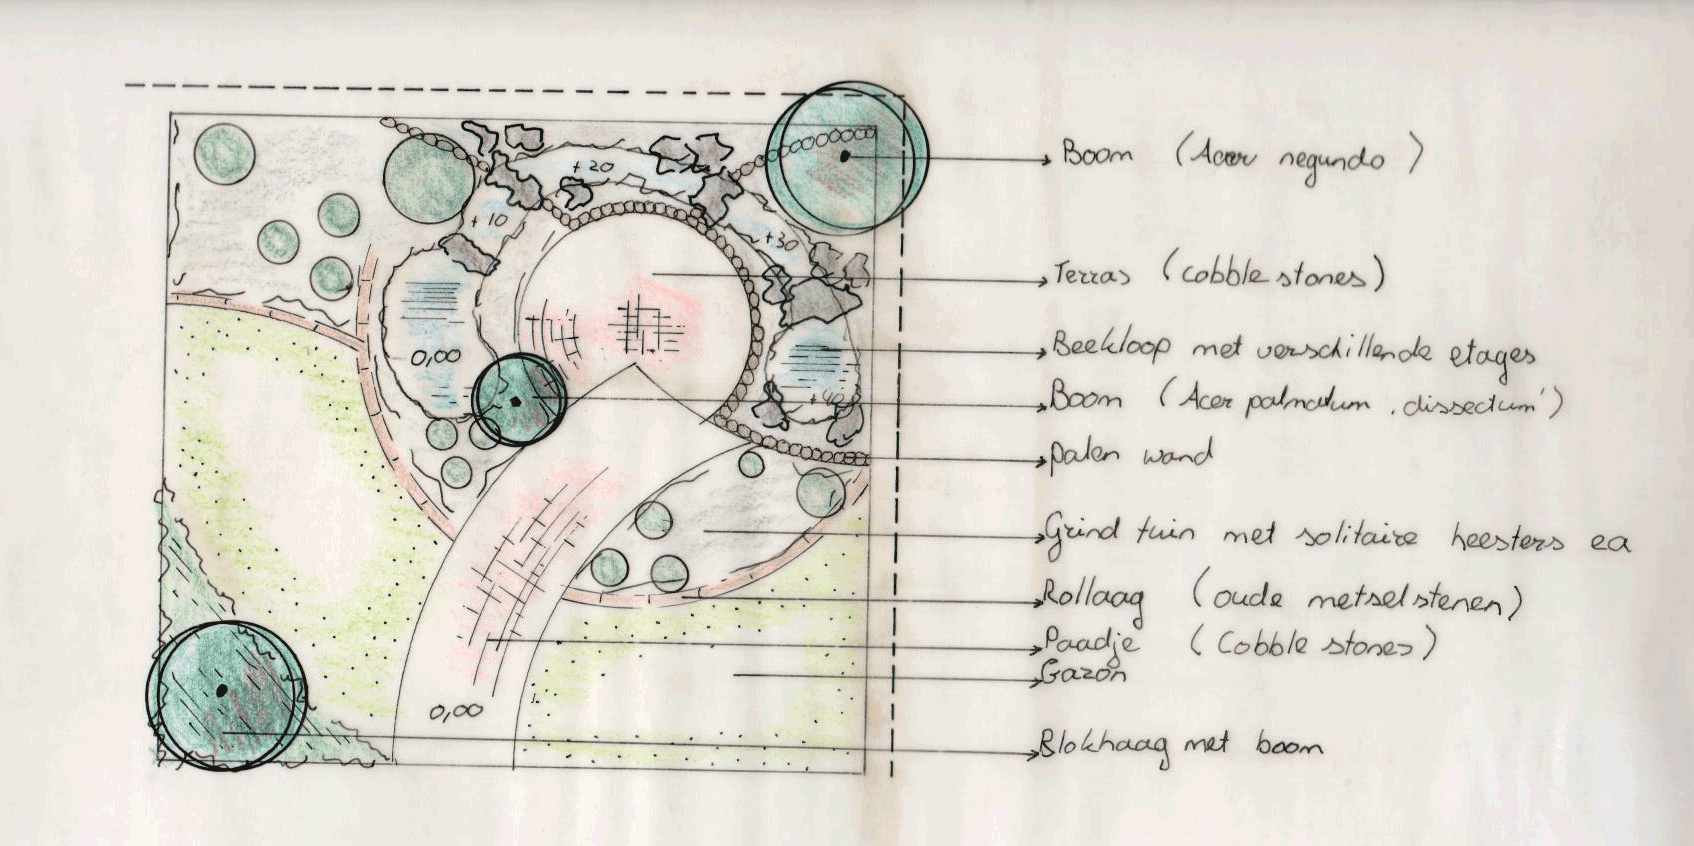 Boom (Acer negundo)
+20
+10
+30
Terras (cobble stones)
0,00
Beekloop met verschillende etages
+40
Boom (Acer palmatum 'dissectum')
palen wand
Grind tuin met solitaire heesters ea
Rollaag (oude metselstenen)
Paadje (Cobble stones)
Gazon
0,00
Blokhaag met boom